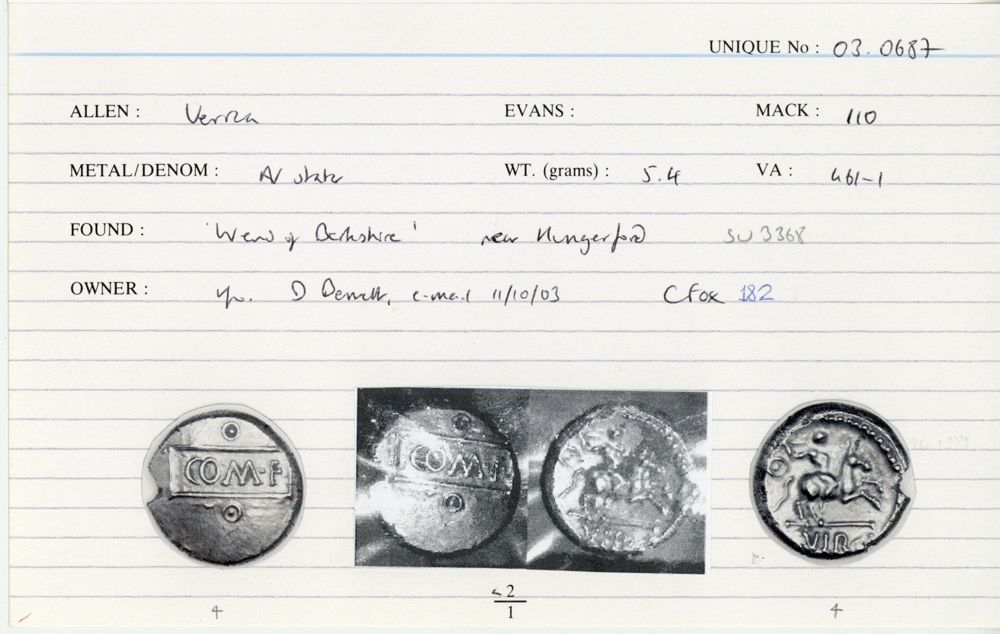 UNIQUE No : 03.0687
ALLEN : Verica EVANS : MACK : 110
METAL/DENOM : AV stater WT. (grams) : 5.4 VA : 461-1
FOUND : 'West of Berkshire' near Hungerford SU 3368
OWNER : D e-mail 11/10/03 CFox 182
COM·F COM·F VIR
4 2/1 4